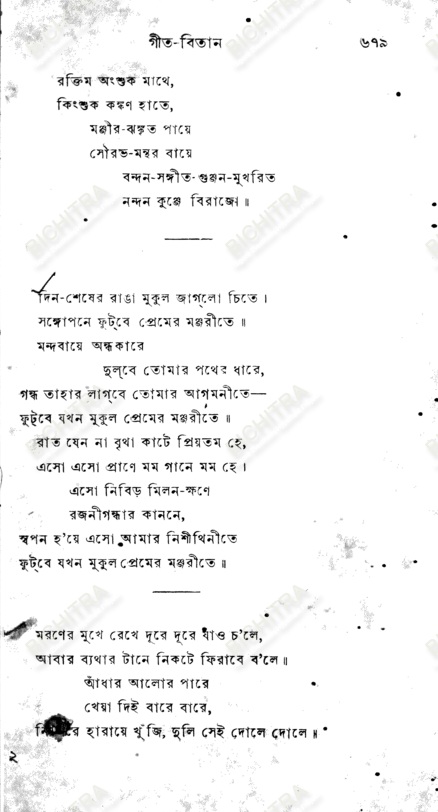 গীত-বিতান ৬৭৯
রক্তিম অংশুক মাথে,
কিংশুক কঙ্কণ হাতে,
মঞ্জীর-ঝঙ্কৃত পায়ে
সৌরভ-মন্থর বায়ে
বন্দন-সঙ্গীত-গুঞ্জন-মুখরিত
নন্দন কুঞ্জে বিরাজো॥
দিন-শেষের রাঙা মুকুল জাগ্‌লো চিতে।
সঙ্গোপনে ফুট্‌বে প্রেমের মঞ্জরীতে॥
মন্দবায়ে অন্ধকারে
দুল্‌বে তোমার পথের ধারে,
গন্ধ তাহার লাগ্‌বে তোমার আগমনীতে—
ফুট্‌বে যখন মুকুল প্রেমের মঞ্জরীতে॥
রাত যেন না বৃথা কাটে প্রিয়তম হে,
এসো এসো প্রাণে মম গানে মম হে।
এসো নিবিড় মিলন-ক্ষণে
রজনীগন্ধার কাননে,
স্বপন হ'য়ে এসো আমার নিশীথিনীতে
ফুট্‌বে যখন মুকুল প্রেমের মঞ্জরীতে॥
মরণের মুখে রেখে দূরে দূরে যাও চ'লে,
আবার ব্যথার টানে নিকটে ফিরাবে ব'লে॥
আঁধার আলোর পারে
খেয়া দিই বারে বারে,
হারায়ে খুঁজি, দুলি সেই দোলে দোলে॥
২
BICHITRA
BICHITRA
BICHITRA
BICHITRA
BICHITRA
BICHITRA
BICHITRA
BICHITRA